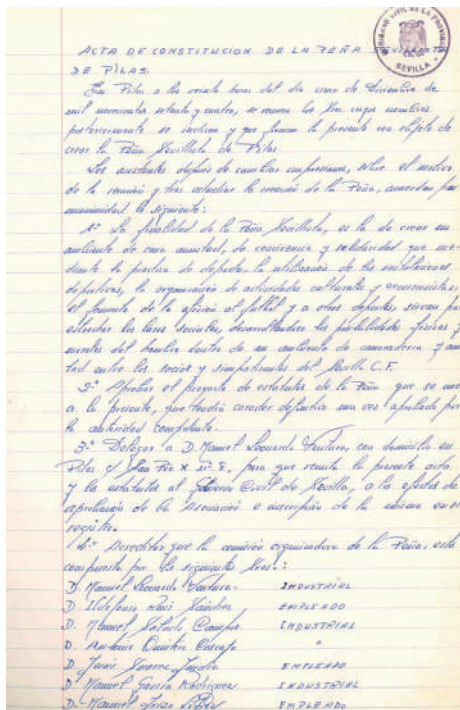 GOBIERNO CIVIL DE LA PROVINCIA
SEVILLA
ACTA DE CONSTITUCION DE LA PEÑA SEVILLISTA
DE PILAS.
En Pilas a las veinte horas del día uno de Diciembre de
mil novecientos setenta y cuatro, se reunen los Sres. cuyos nombres
posteriormente se indican y que firman la presente con objeto de
crear la Peña Sevillista de Pilas.
Los asistentes después de cambiar impresiones, sobre el motivo
de la reunión y tras estudiar la creación de la Peña, acuerdan por
unanimidad lo siguiente:
1º La finalidad de la Peña Sevillista, es la de crear un
ambiente de sana amistad, de convivencia y solidaridad que me-
diante la practica de deportes, la utilización de las instalaciones
deportivas, la organización de actividades culturales y excursionistas,
el fomento de la afición al futbol y a otros deportes, sirvan para
estrechar los lazos sociales, desarrollandose las posibilidades fisicas y
morales del hombre dentro de un ambiente de camaraderia y amis
tad entre los socios y simpatizantes del Sevilla C.F.
2º Aprobar el proyecto de estatutos de la Peña que se une
a la presente, que tendrá caracter definitivo una vez aprobado por
la autoridad competente.
3º Delegar a D. Manuel Leonardo Ventura, con domicilio en
Pilas c/ San Pio X nº 8, para que remita la presente acta
y los estatutos al Gobierno Civil de Sevilla, a los efectos de
aprobación de la Asociación e inscripción de la misma en el
registro.
4º Acreditar que la comisión organizadora de la Peña, está
compuesta por los siguientes Sres.:
D. Manuel Leonardo Ventura. INDUSTRIAL
D. Ildefonso Ruiz Sánchez EMPLEADO
D. Manuel Campos INDUSTRIAL
D. Antonio Quintero "
D. Juan EMPLEADO
D. Manuel Rodriguez INDUSTRIAL
D. Manuel EMPLEADO